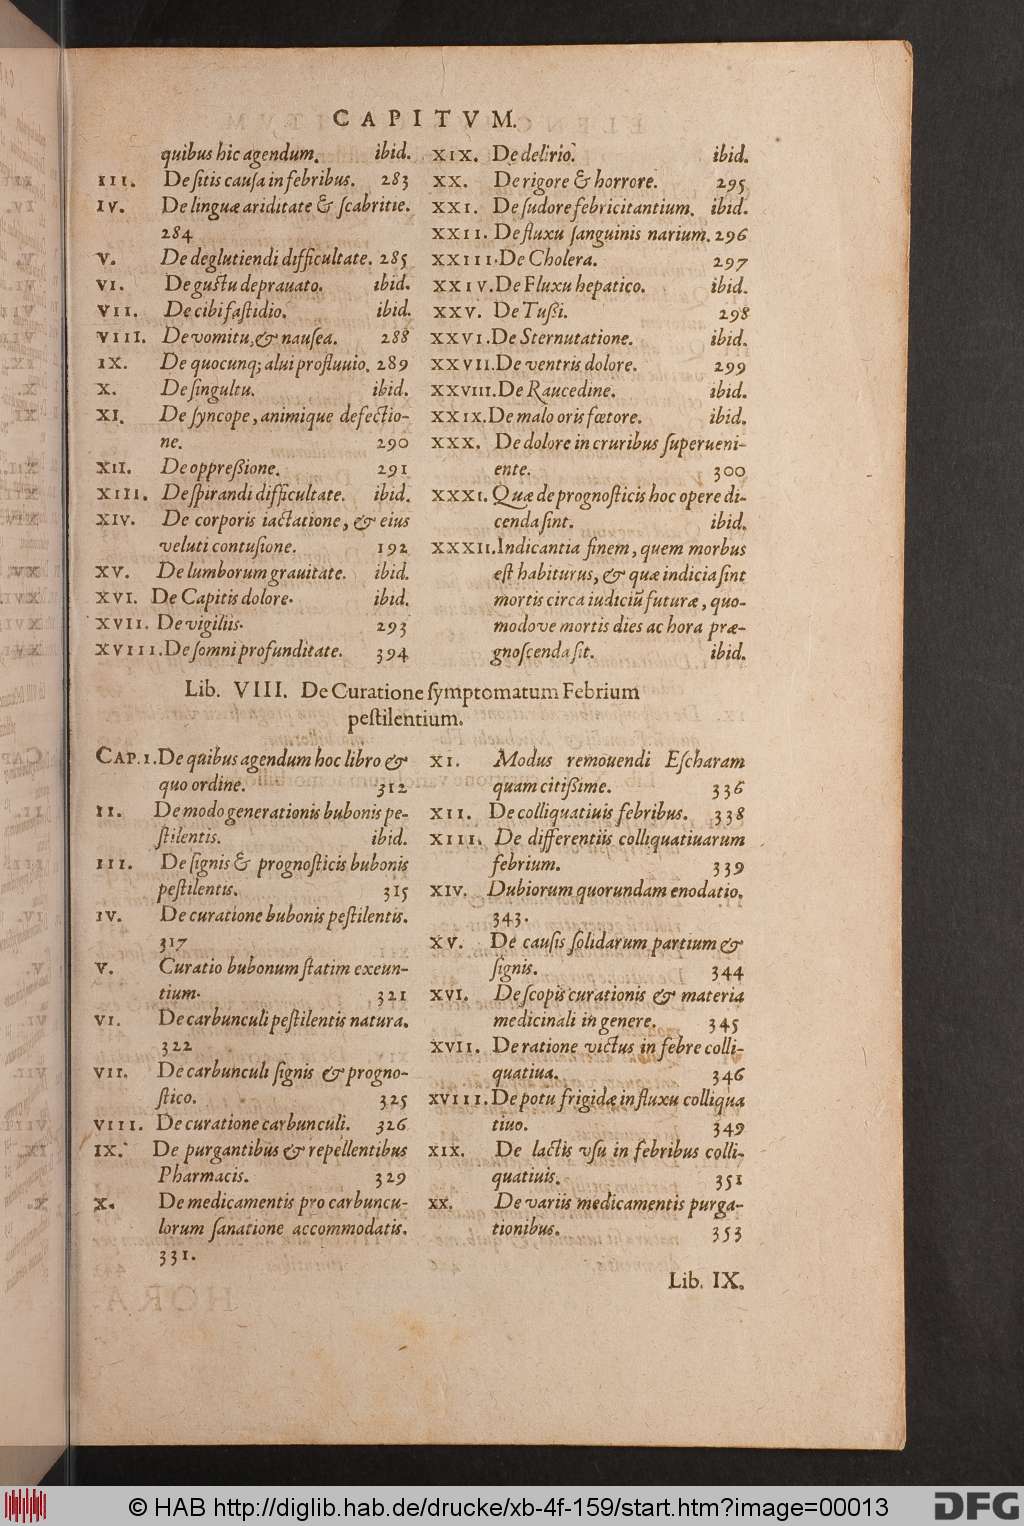 CAPITVM.
quibus hic agendum. ibid.
III. De sitis causa in febribus. 283
IV. De linguæ ariditate & scabritie.
284
V. De deglutiendi difficultate. 285
VI. De gustu deprauato. ibid.
VII. De cibi fastidio. ibid.
VIII. De vomitu, & nausea. 288
IX. De quocunq; alui profluuio. 289
X. De singultu. ibid.
XI. De syncope, animique defectio-
ne. 290
XII. De oppreßione. 291
XIII. De spirandi difficultate. ibid.
XIV. De corporis iactatione, & eius
veluti contusione. 192
XV. De lumborum grauitate. ibid.
XVI. De Capitis dolore. ibid.
XVII. De vigiliis. 293
XVIII. De somni profunditate. 394
XIX. De delirio. ibid.
XX. De rigore & horrore. 295
XXI. De sudore febricitantium. ibid.
XXII. De fluxu sanguinis narium. 296
XXIII. De Cholera. 297
XXIV. De Fluxu hepatico. ibid.
XXV. De Tußi. 298
XXVI. De Sternutatione. ibid.
XXVII. De ventris dolore. 299
XXVIII. De Raucedine. ibid.
XXIX. De malo oris fœtore. ibid.
XXX. De dolore in cruribus superueni-
ente. 300
XXXI. Quæ de prognosticis hoc opere di-
cenda sint. ibid.
XXXII. Indicantia finem, quem morbus
est habiturus, & quæ indicia sint
mortis circa iudiciũ futuræ, quo-
modove mortis dies ac hora præ-
gnoscenda sit. ibid.
Lib. VIII. De Curatione symptomatum Febrium
pestilentium.
CAP. I. De quibus agendum hoc libro &
quo ordine. 312
II. De modo generationis bubonis pe-
stilentis. ibid.
III. De signis & prognosticis bubonis
pestilentis. 315
IV. De curatione bubonis pestilentis.
317
V. Curatio bubonum statim exeun-
tium. 321
VI. De carbunculi pestilentis natura.
322
VII. De carbunculi signis & progno-
stico. 325
VIII. De curatione carbunculi. 326
IX. De purgantibus & repellentibus
Pharmacis. 329
X. De medicamentis pro carbuncu-
lorum sanatione accommodatis.
331.
XI. Modus remouendi Escharam
quam citißime. 336
XII. De colliquatiuis febribus. 338
XIII. De differentiis colliquatiuarum
febrium. 339
XIV. Dubiorum quorundam enodatio.
343.
XV. De causis solidarum partium &
signis. 344
XVI. De scopis curationis & materia
medicinali in genere. 345
XVII. De ratione victus in febre colli-
quatiua. 346
XVIII. De potu frigidæ in fluxu colliqua
tiuo. 349
XIX. De lactis vsu in febribus colli-
quatiuis. 351
XX. De variis medicamentis purga-
tionibus. 353
Lib. IX.
© HAB http://diglib.hab.de/drucke/xb-4f-159/start.htm?image=00013
DFG